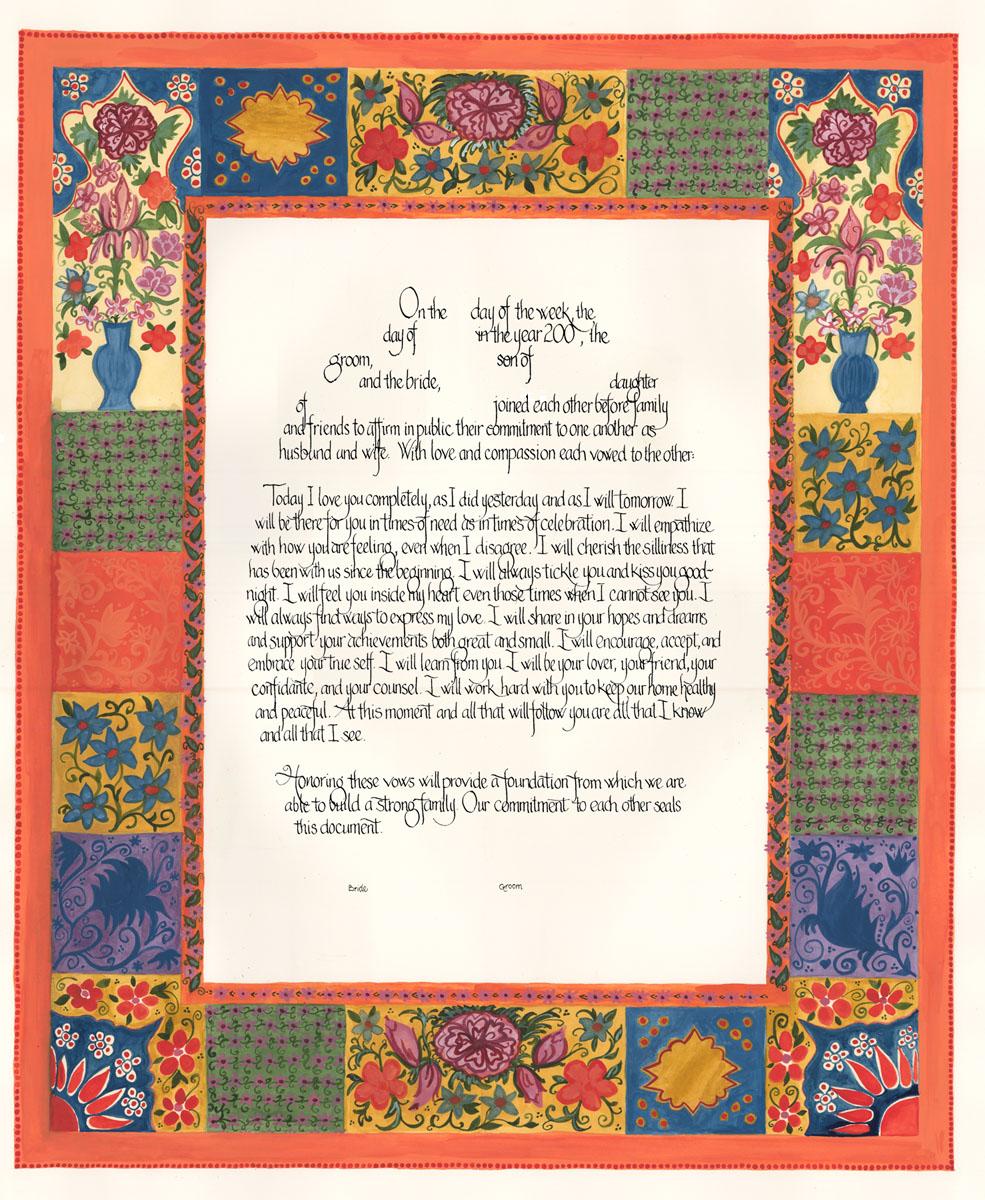 On the day of the week, the
day of in the year 200 , the
groom, son of
and the bride, daughter
of joined each other before family
and friends to affirm in public their commitment to one another as
husband and wife. With love and compassion each vowed to the other:
Today I love you completely, as I did yesterday and as I will tomorrow. I
will be there for you in times of need as in times of celebration. I will empathize
with how you are feeling, even when I disagree. I will cherish the silliness that
has been with us since the beginning. I will always tickle you and kiss you good-
night. I will feel you inside my heart even those times when I cannot see you. I
will always find ways to express my love. I will share in your hopes and dreams
and support your achievements both great and small. I will encourage, accept, and
embrace your true self. I will learn from you. I will be your lover, your friend, your
confidante, and your counsel. I will work hard with you to keep our home healthy
and peaceful. At this moment and all that will follow you are all that I know
and all that I see.
Honoring these vows will provide a foundation from which we are
able to build a strong family. Our commitment to each other seals
this document.
Bride Groom